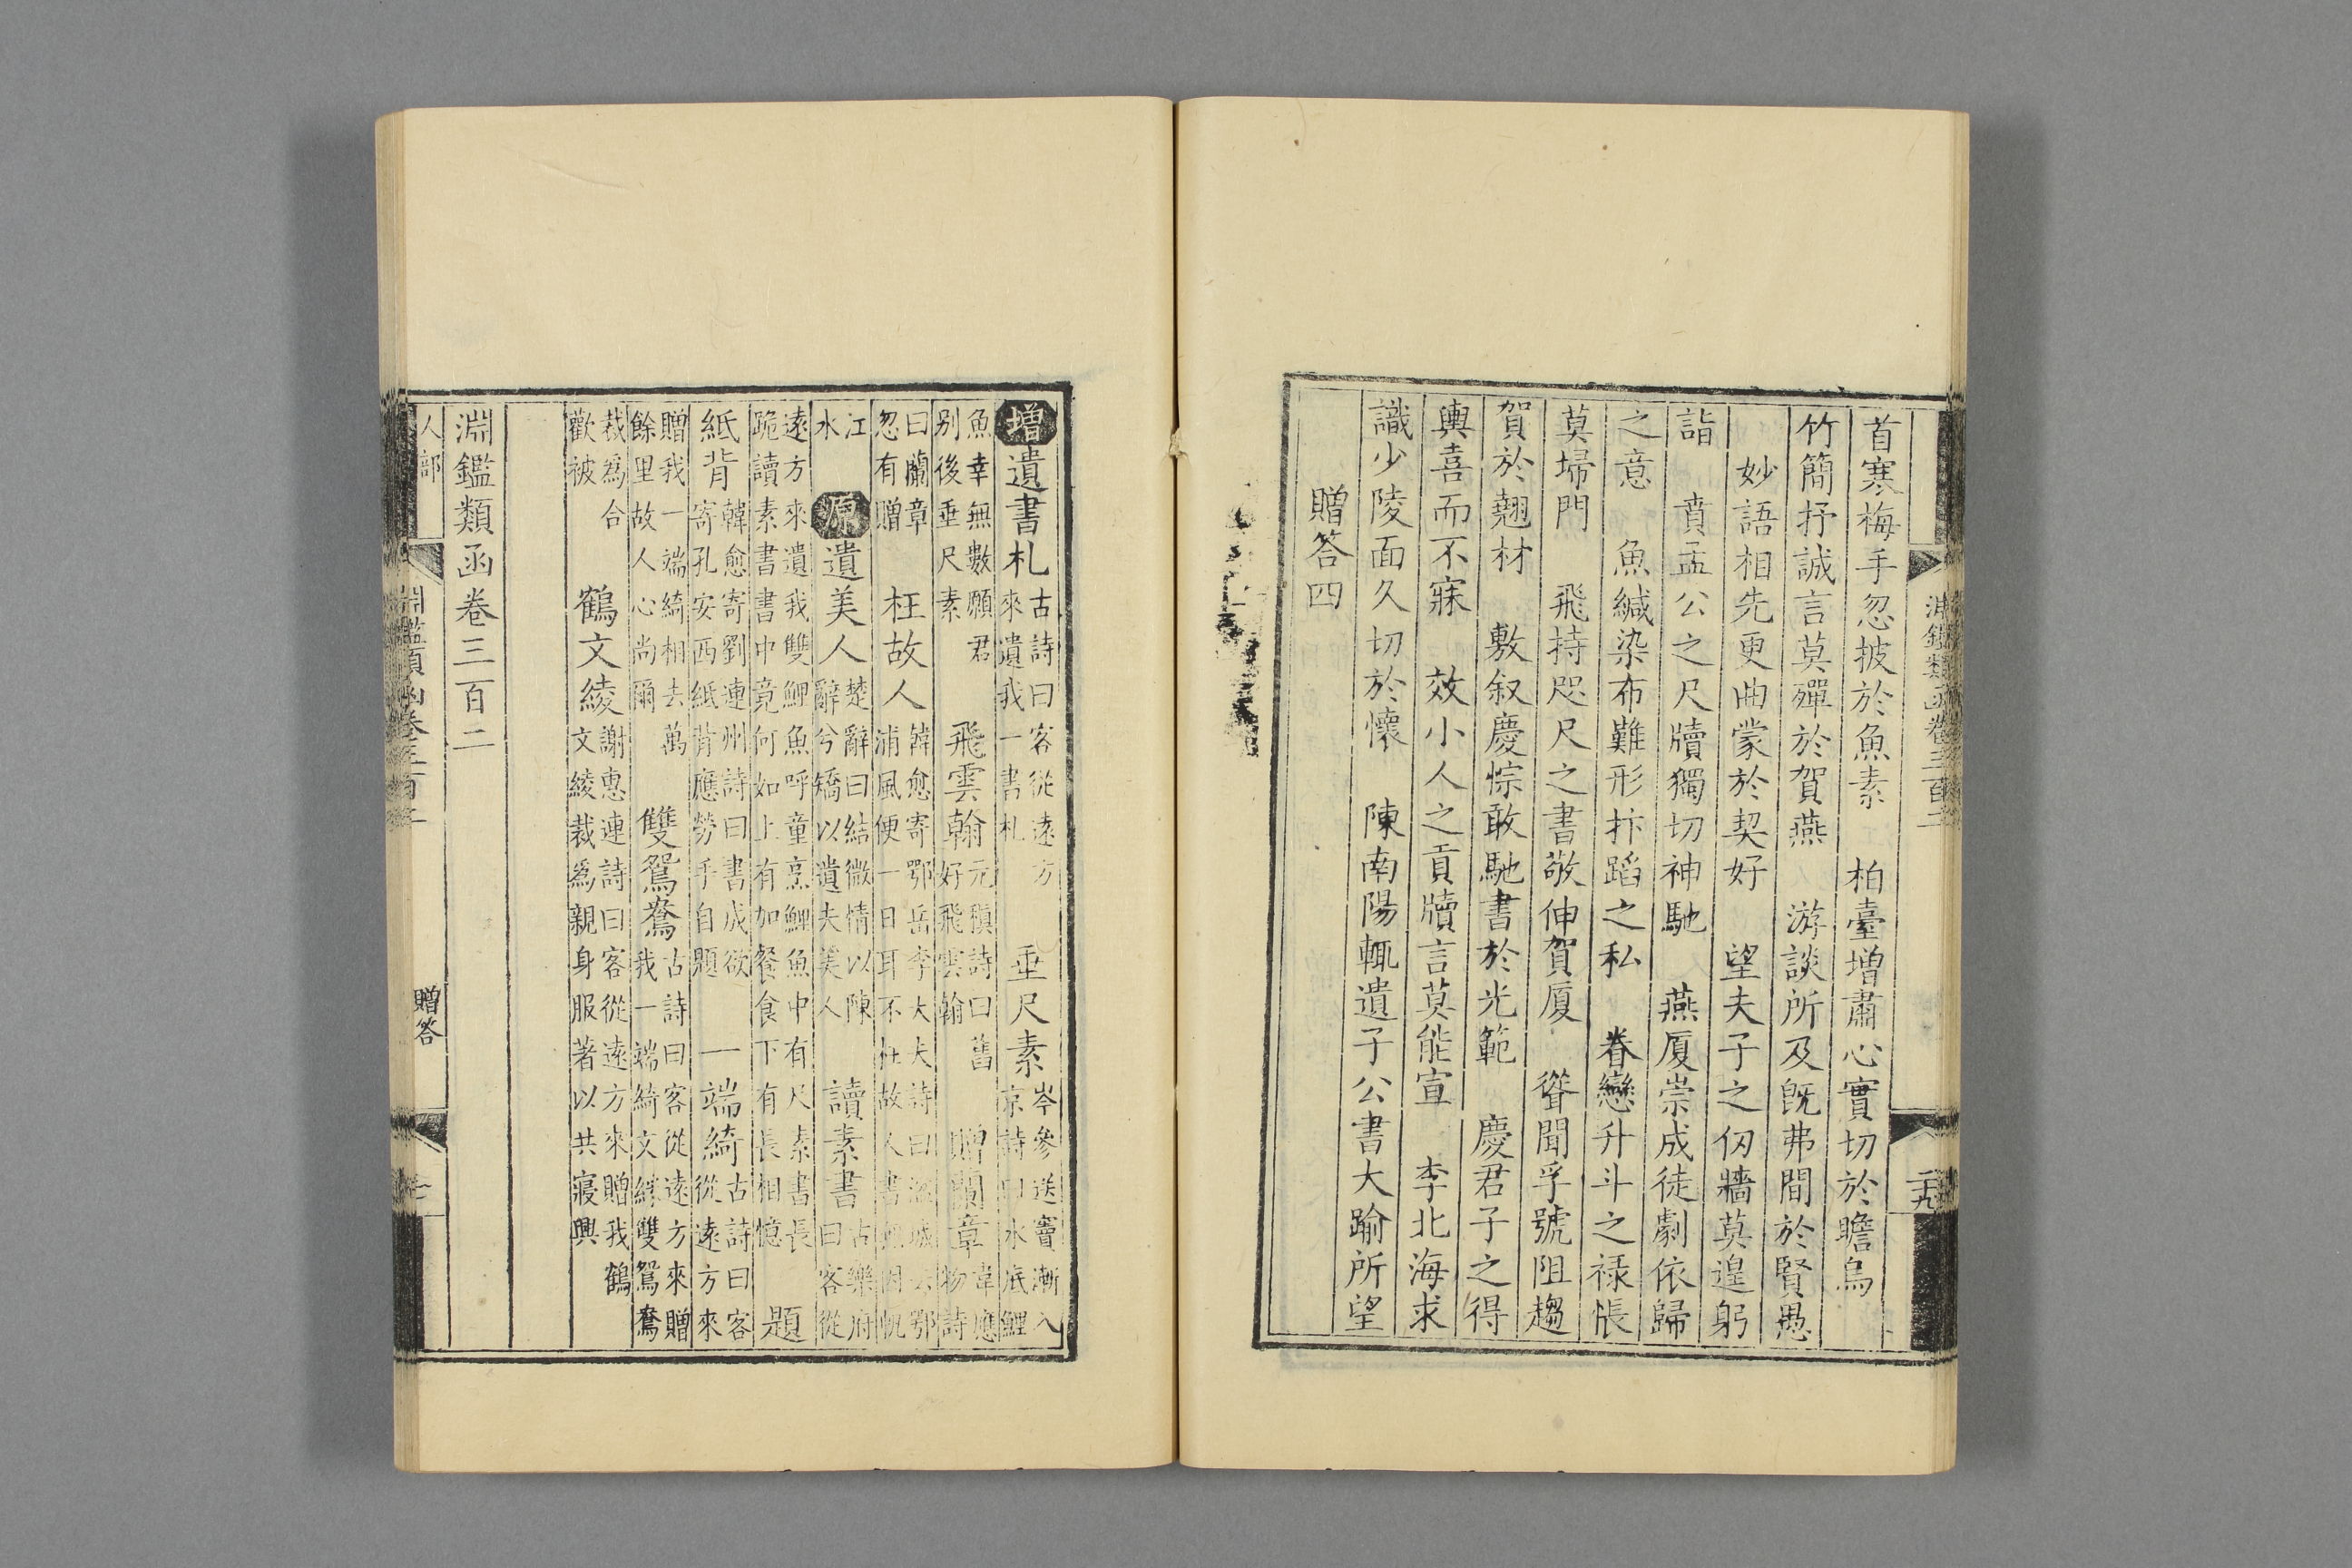 淵鑑類函卷三百二
二十九
首寒梅手忽披於魚素　柏臺增肅心實切於瞻烏
竹簡抒誠言莫殫於賀燕　游談所及旣弗間於賢愚
妙語相先更曲蒙於契好　望夫子之仞牆莫遑躬
詣　賁孟公之尺牘獨切神馳　燕厦崇成徒劇依歸
之意　魚緘染布難形抃蹈之私　眷戀升斗之禄悵
莫埽門　飛持咫尺之書敬伸賀厦　聳聞孚號阻趨
賀於翹材　敷叙慶悰敢馳書於光範　慶君子之得
輿喜而不寐　效小人之貢牘言莫能宣　李北海求
識少陵面久切於懷　陳南陽輒遺子公書大踰所望
贈答四
增遺書札古詩曰客從遠方來遺我一書札　垂尺素岑參送竇漸入京詩曰水底鯉
魚幸無數願君别後垂尺素　飛雲翰元稹詩曰舊好飛雲翰　贈蘭章韋應物詩
曰蘭章忽有贈　枉故人韓愈寄鄂岳李大夫詩曰城去鄂浦風便一日耳不枉故人書無因帆
江水　原遺美人楚辭曰結微情以陳辭兮矯以遺夫美人　讀素書古樂府曰客從
遠方來遺我雙鯉魚呼童烹鯉魚中有尺素書長跪讀素書書中竟何如上有加餐食下有長相憶　題
紙背韓愈寄劉連州詩曰書成欲寄孔安西紙背應勞手自題　一端綺古詩曰客從遠方來
贈我一端綺相去萬餘里故人心尚爾　雙鴛鴦古詩曰客從遠方來贈我一端綺文綵雙鴛鴦
裁爲合歡被　鶴文綾謝惠連詩曰客從遠方來贈我鶴文綾裁爲親身服著以共寢興
淵鑑類函卷三百二
人部
淵鑑類函卷三百二
贈答